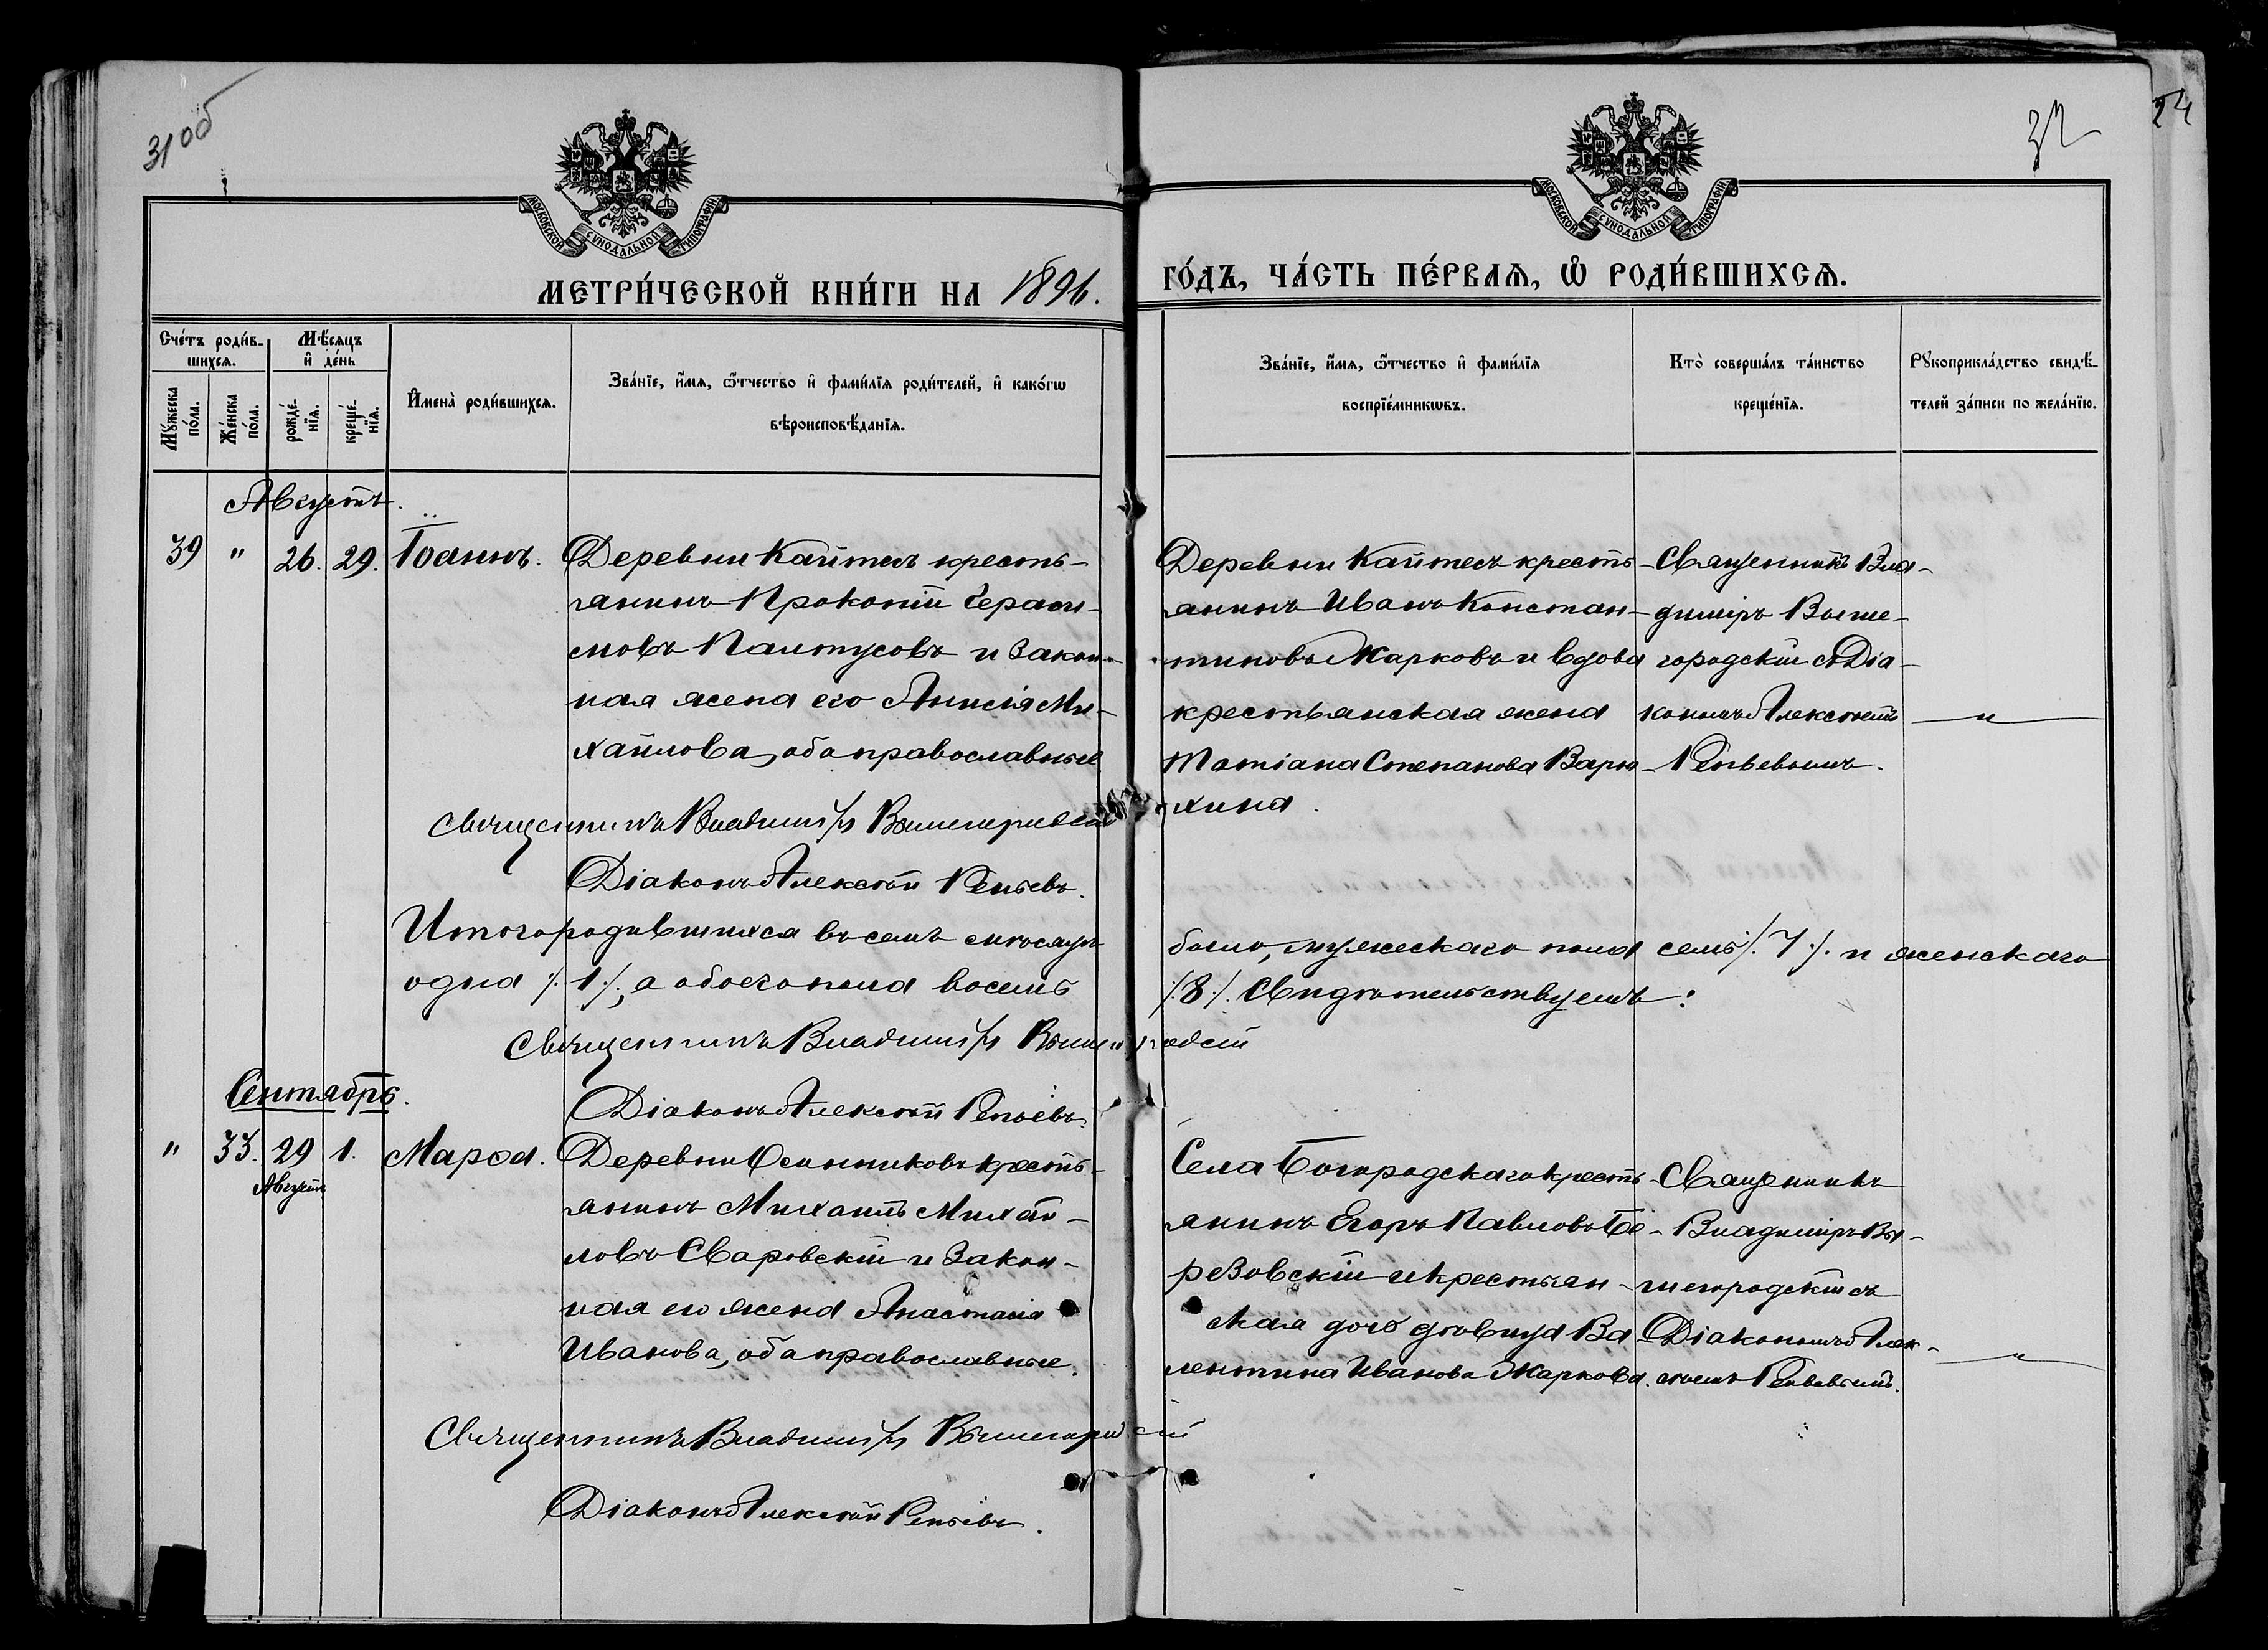 31об
32
24
МОСКОВСКОЙ СѴНОДАЛЬНОЙ ТИПОГРАФІИ
МОСКОВСКОЙ СѴНОДАЛЬНОЙ ТИПОГРАФІИ
МЕТРИ́ЧЕСКОЙ КНИ́ГИ НА 1896.
ГО́ДЪ, ЧА́СТЬ ПЕ́РВАѦ, Ѽ РОДИ́ВШИХСѦ.
Сче́тъ роди́в-
шихсѧ.
Мꙋ́жеска
по́ла.
Же́нска
по́ла.
Мѣ́сяцъ
и҆ де́нь
рожде́-
нїѧ.
креще́-
нїѧ.
И҆мена̀ роди́вшихсѧ.
Зва́нїе, и҆́мѧ, ѻ҆́тчество и҆ фами́лїѧ роди́телей, и҆ како́гѡ
вѣроисповѣ́данїѧ.
Зва́нїе, и҆́мѧ, ѻ҆́тчество и҆ фами́лїѧ
воспрїе́мникѡвъ.
Кто̀ соверша́лъ та́инство
креще́нїѧ.
Рꙋкоприкла́дство свидѣ́-
телей за́писи по жела́нїю.
Августъ.
39 " 26. 29. Іоаннъ.
Деревни Кайтесъ кресть-
янинъ Прокопій Гераси-
мовъ Палтусовъ и закон-
ная жена его Анисія Ми-
хайлова, оба православные
Деревни Кайтесъ кресть-
янинъ Иванъ Констан-
тиновъ Жарковъ и вдова
крестьянская жена
Татіана Степанова Варю-
хина.
Священникъ Вла-
диміръ Выше-
городскій съ Діа-
кономъ Алексѣемъ
Репьевымъ.
"
Священникъ Владиміръ Вышегородскій
Діаконъ Алексѣй Репьевъ.
Итого родившихся въ семъ мѣсяцѣ
было, мужескаго пола семь /.7./. и женскаго
одна /.1./, а обоего пола восемь
/.8./. Свидѣтельствуемъ:
Священникъ Владиміръ Вышегородскій
Діаконъ Алексѣй Репьевъ.
Сентябрь.
" 33. 29 1. Марѳа.
Августа
Деревни Осинниковъ кресть-
янинъ Михаилъ Михай-
ловъ Сваровскій и закон-
ная его жена Анастасія
Иванова, оба православные.
Села Богородскаго кресть-
янинъ Егоръ Павловъ Бе-
резовскій и крестьян-
ская дочь дѣвица Ва-
лентина Иванова Жаркова.
Священникъ
Владиміръ Вы-
шегородскій съ
Діакономъ Алек-
сѣемъ Репьевымъ.
"
Священникъ Владиміръ Вышегородскій
Діаконъ Алексѣй Репьевъ.